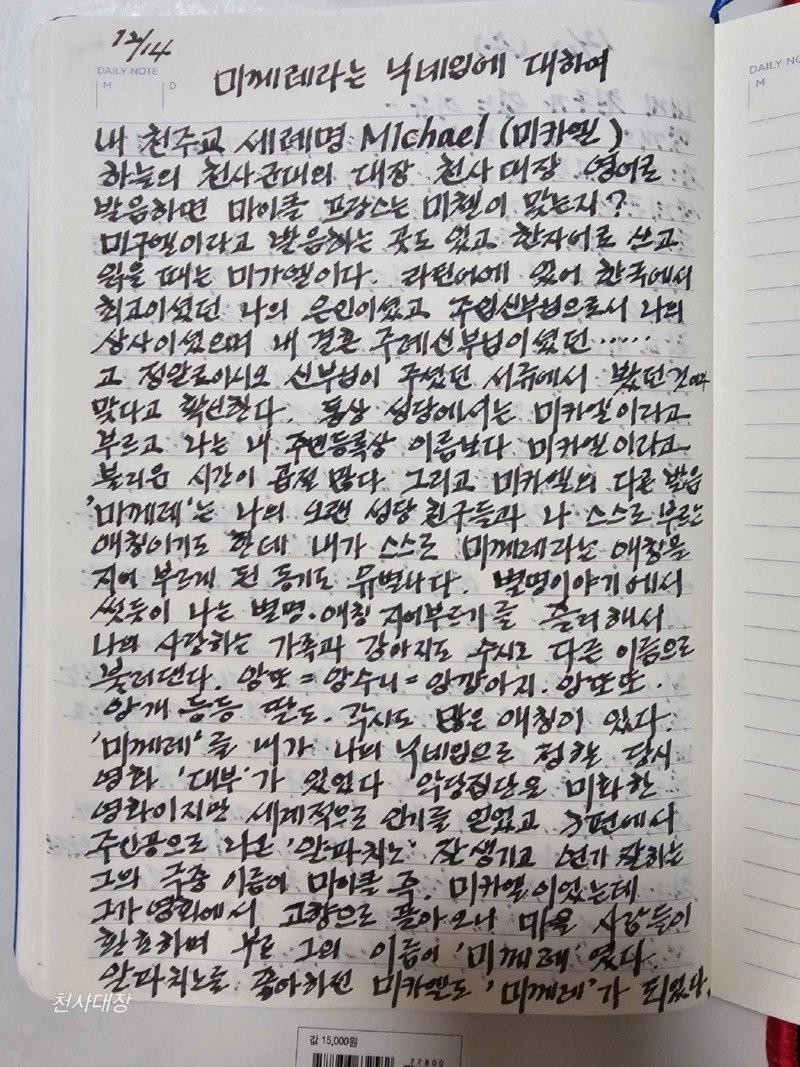 12/14
DAILY NOTE
M D
미께레라는 닉네임에 대하여
내 천주교 세례명 Michael (미카엘)
하늘의 천사군대의 대장 천사대장 영어로
발음하면 마이클 프랑스는 미첼이 맞는지?
미구엘이라고 발음하는 곳도 있고 한자어로 쓰고
읽을 때는 미가엘이다. 라틴어에 있어 한국에서
최고이셨던 나의 은인이셨고 주임신부님으로서 나의
상사이셨으며 내 결혼 주례신부님이셨던……
고 정알로이시오 신부님이 주셨던 서류에서 봤던 것이다
맞다고 확신한다. 통상 성당에서는 미카엘이라고
부르고 나는 내 주민등록상 이름보다 미카엘이라고
불리운 시간이 곱절 많다 그리고 미카엘의 다른 발음
'미께레'는 나의 오랜 성당 친구들과 나 스스로 부르는
애칭이기도 한데 내가 스스로 미께레라는 애칭을
지어 부르게 된 동기도 유별나다. 별명이야기에서
썼듯이 나는 별명·애칭 지어부르기를 즐겨해서
나의 사랑하는 가족과 강아지도 수시로 다른 이름으로
불러댄다. 앙또=앙수니=앙강아지. 앙또또.
앙개 등등 딸도. 각시도 많은 애칭이 있다.
'미께레'를 내가 나의 닉네임으로 정할 당시
영화 '대부'가 있었다 악당집단을 미화한
영화이지만 세계적으로 인기를 얻었고 3편에서
주인공으로 나온 '알파치노' 잘생기고 연기 잘하는
그의 극중 이름이 마이클 즉. 미카엘이었는데
그가 영화에서 고향으로 돌아오니 마을 사람들이
환호하며 부른 그의 이름이 '미께레'였다.
알파치노를 좋아하던 미카엘도 '미께레'가 되었다.
천사대장
DAILY NO
M
값 15,000원
77800